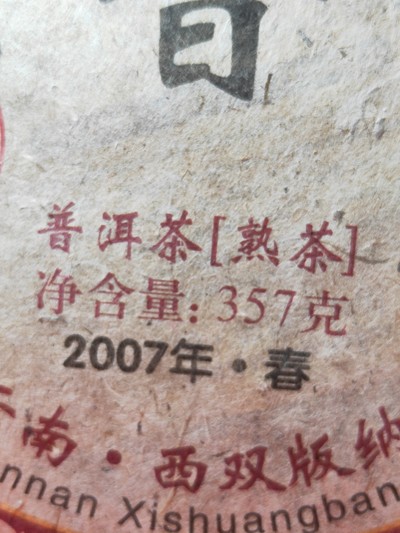 普洱茶[熟茶]
净含量: 357克
2007年·春
南·西双版纳
nnan Xishuangban